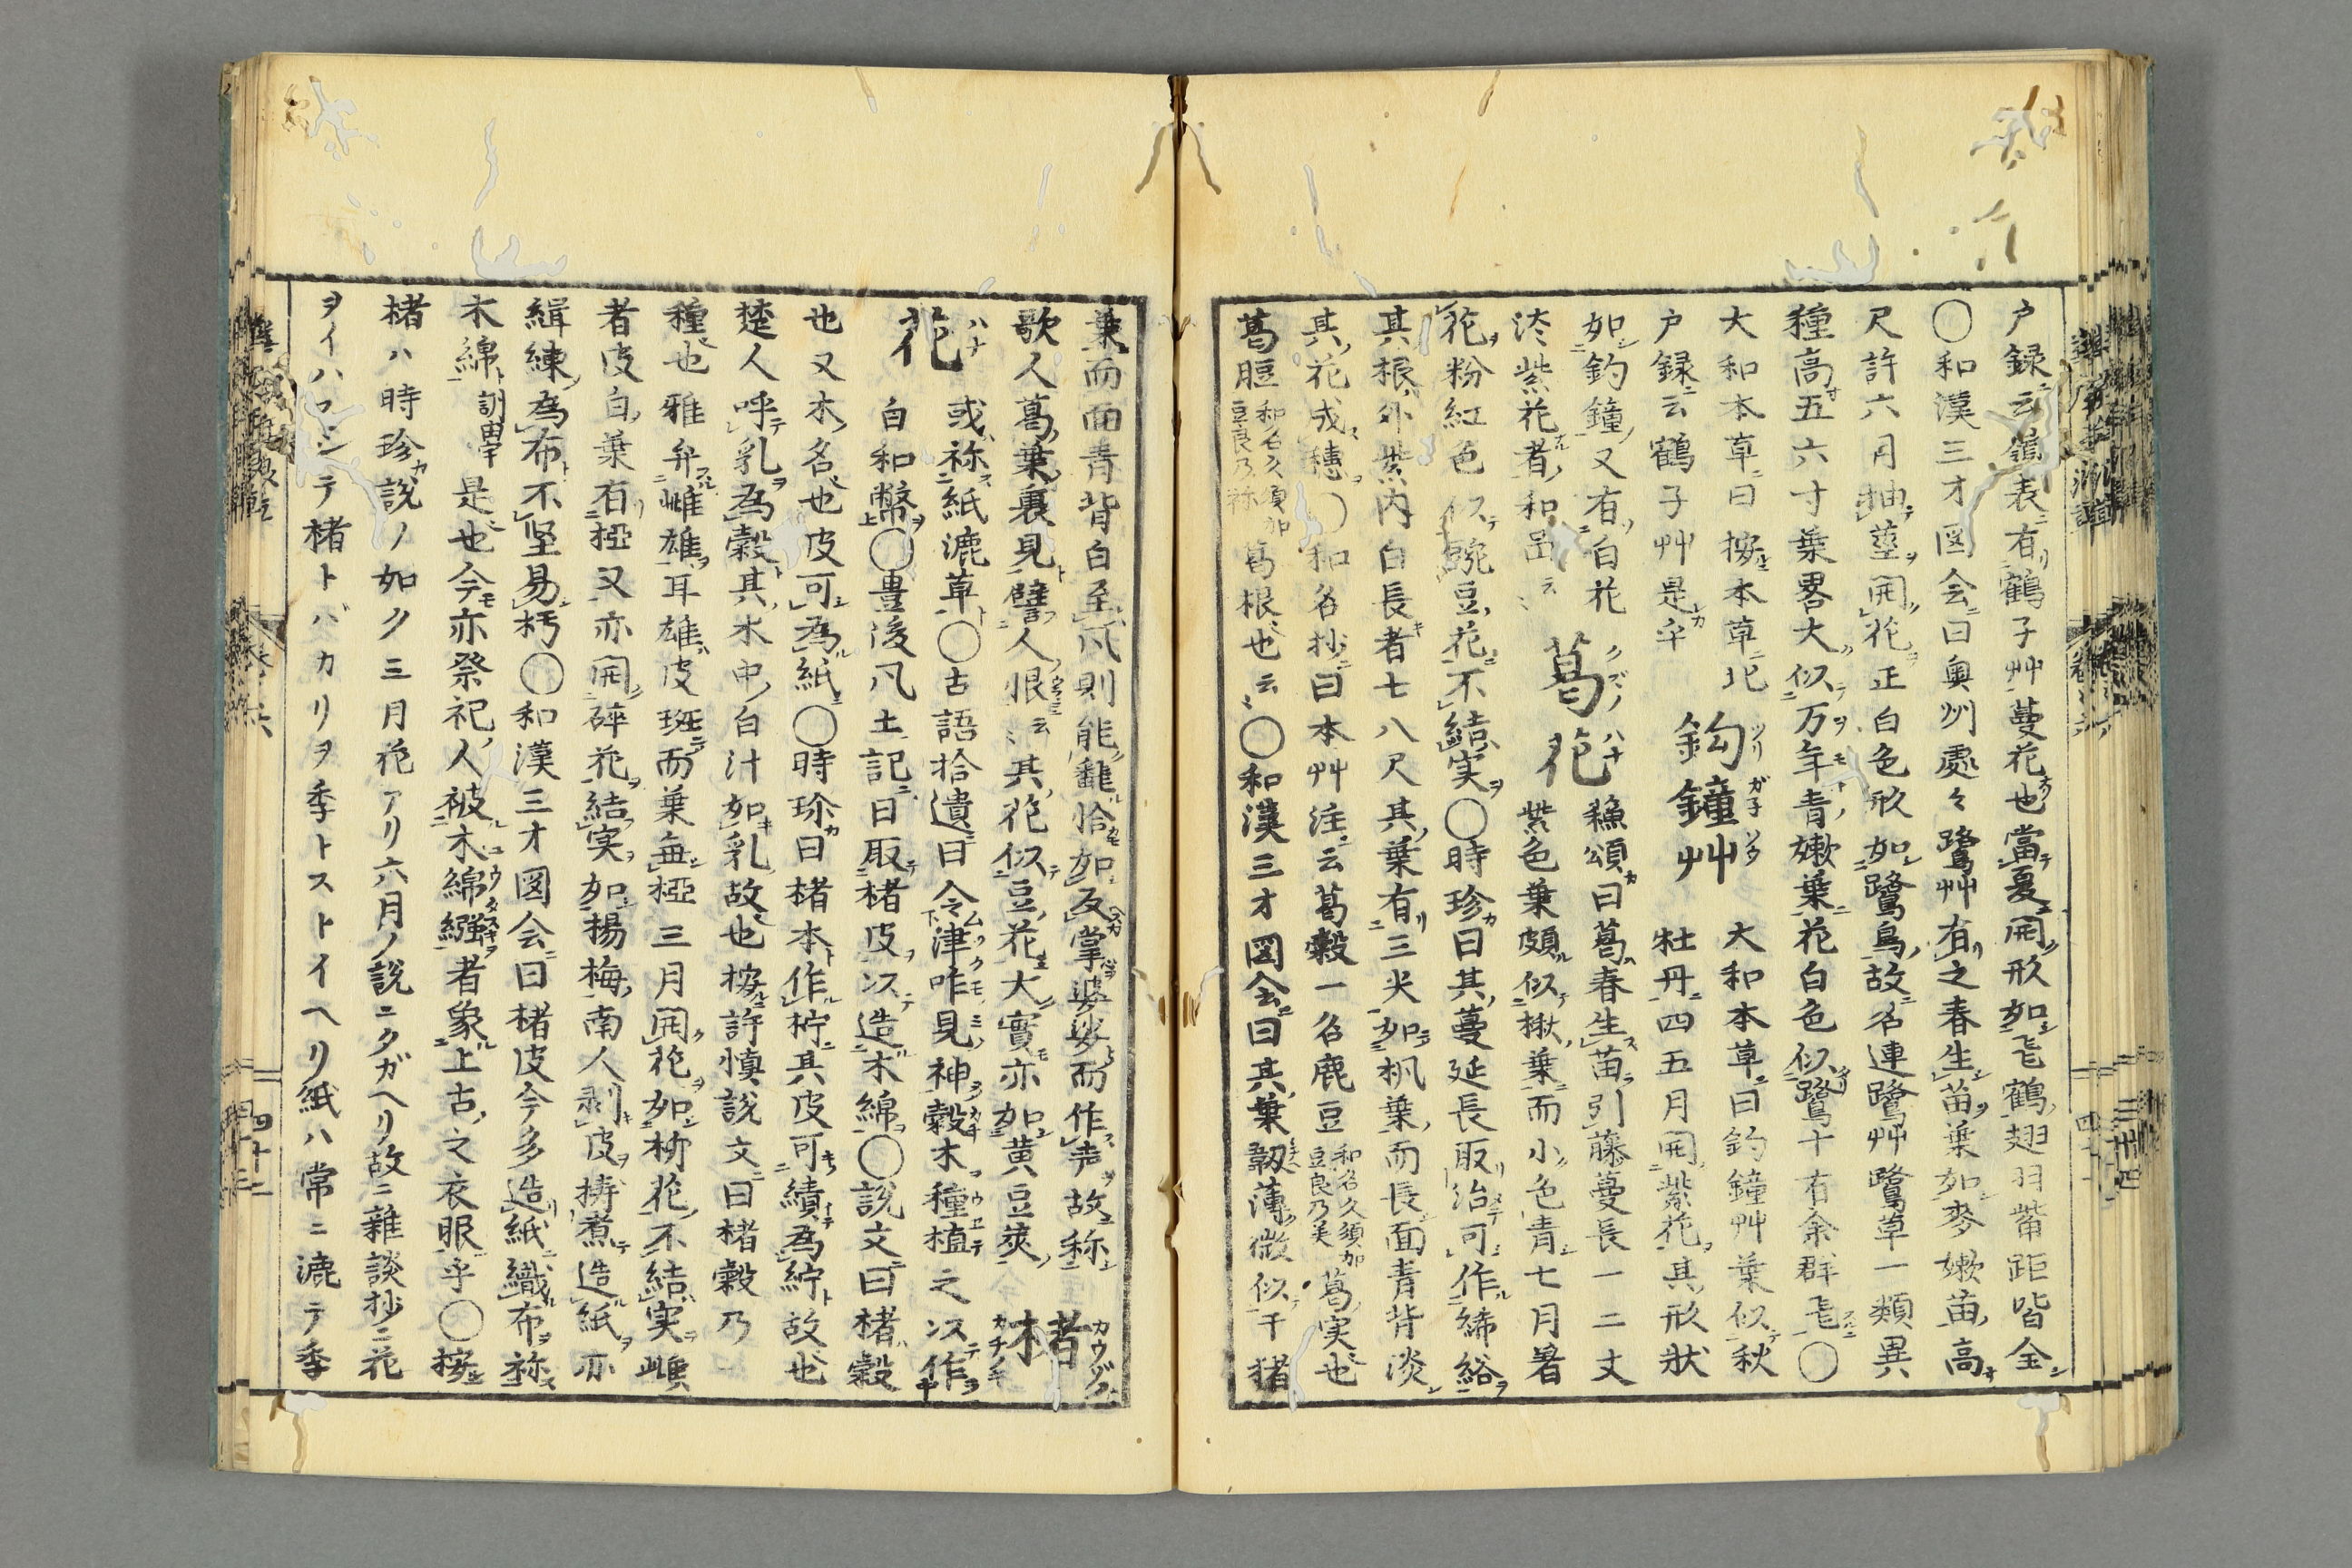 戸録云嶺表有鶴子艸蔓花也當夏開形如飛鶴翅羽觜距皆全
○和漢三才図会曰奥州處々鷺艸有之春生苗葉如麥嫩苗高
尺許六月抽莖開花正白色形如鷺鳥故名連鷺艸鷺草一類異
種高五六寸葉畧大似万年青嫩葉花白色似鷺十有余群飛○
大和本草曰按本草北
戸録云鶴子艸是乎
鈎鐘艸
ツリガネソウ
大和本草曰釣鐘艸葉似秋
牡丹四五月開紫花其形状
如釣鐘又有白花
淡紫花者和品云々
葛花
クズノハナ
蘓頌曰葛春生苗引藤蔓長一二丈
紫色葉頗似楸葉而小色青七月著
花粉紅色似豌豆花不結実○時珍曰其蔓延長取治可作絺綌
其根外紫内白長者七八尺其葉有三尖如枫葉而長面青背淡
其花成穗○和名抄曰本艸注云葛穀一名鹿豆
和名久須加
豆良乃美
葛実也
葛脰
和名久須加
豆良乃祢
葛根也云々○和漢三才図会曰其葉靱薄微似干猪
葉而面青背白至風則能飜恰如反掌婆娑而作声故称
歌人葛葉裏見譬人恨云々其花似豆花大實亦如黄豆莢
楮
カウゾ
カヂノ
花
ハナ
或称紙漉草○古語拾遺曰令津咋見神穀木種植之以作
白和幣○豊後風土記曰取楮皮以造木綿○説文曰楮穀
也又木名也皮可為紙○時珍曰楮本作柠其皮可績為紵故也
楚人呼乳為穀其木中白汁如乳故也按許慎説文曰楮穀乃一
種也雅弁雌雄耳雄皮斑而葉無椏三月開花如柳花不結実雌
者皮白葉有椏又亦開碎花結実如揚梅南人剥皮擣煮造紙亦
緝練為布不坚易朽○和漢三才図会曰楮皮今多造紙織布称
木綿
訓由宇
是也今亦祭祀人被木綿繦者象上古之衣服乎○按
楮ハ時珍説ノ如ク三月花アリ六月ノ説ニタガヘリ故ニ雜談抄ニ花
ヲイハズシテ楮トバカリヲ季トストイヘリ紙ハ常ニ漉テ季